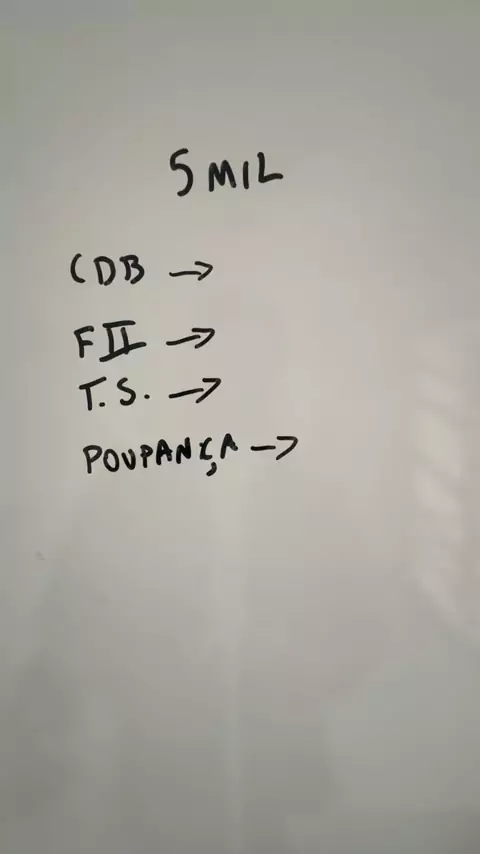 5 MIL
CDB →
FII →
T.S. →
POUPANÇA →